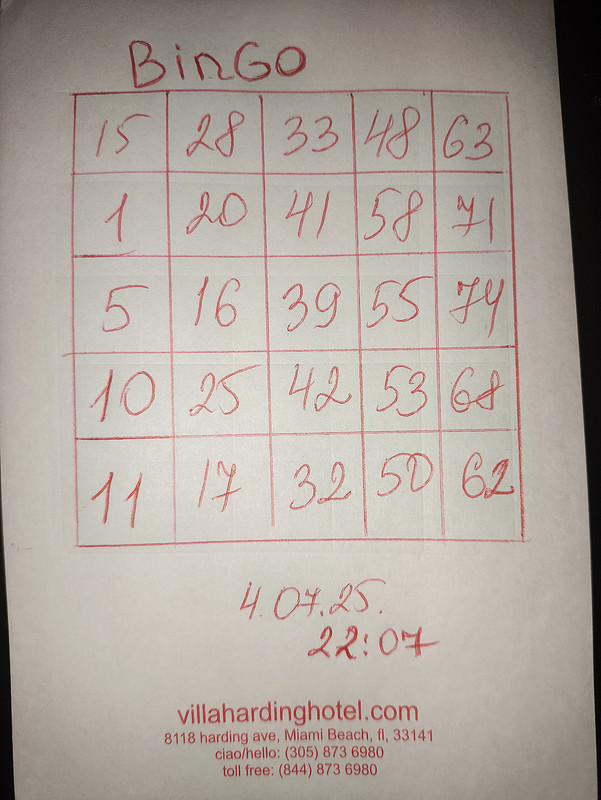 BinGO
15 28 33 48 63
1 20 41 58 71
5 16 39 55 74
10 25 42 53 68
11 17 32 50 62
4.07.25.
22:07
villahardinghotel.com
8118 harding ave, Miami Beach, fl, 33141
ciao/hello: (305) 873 6980
toll free: (844) 873 6980